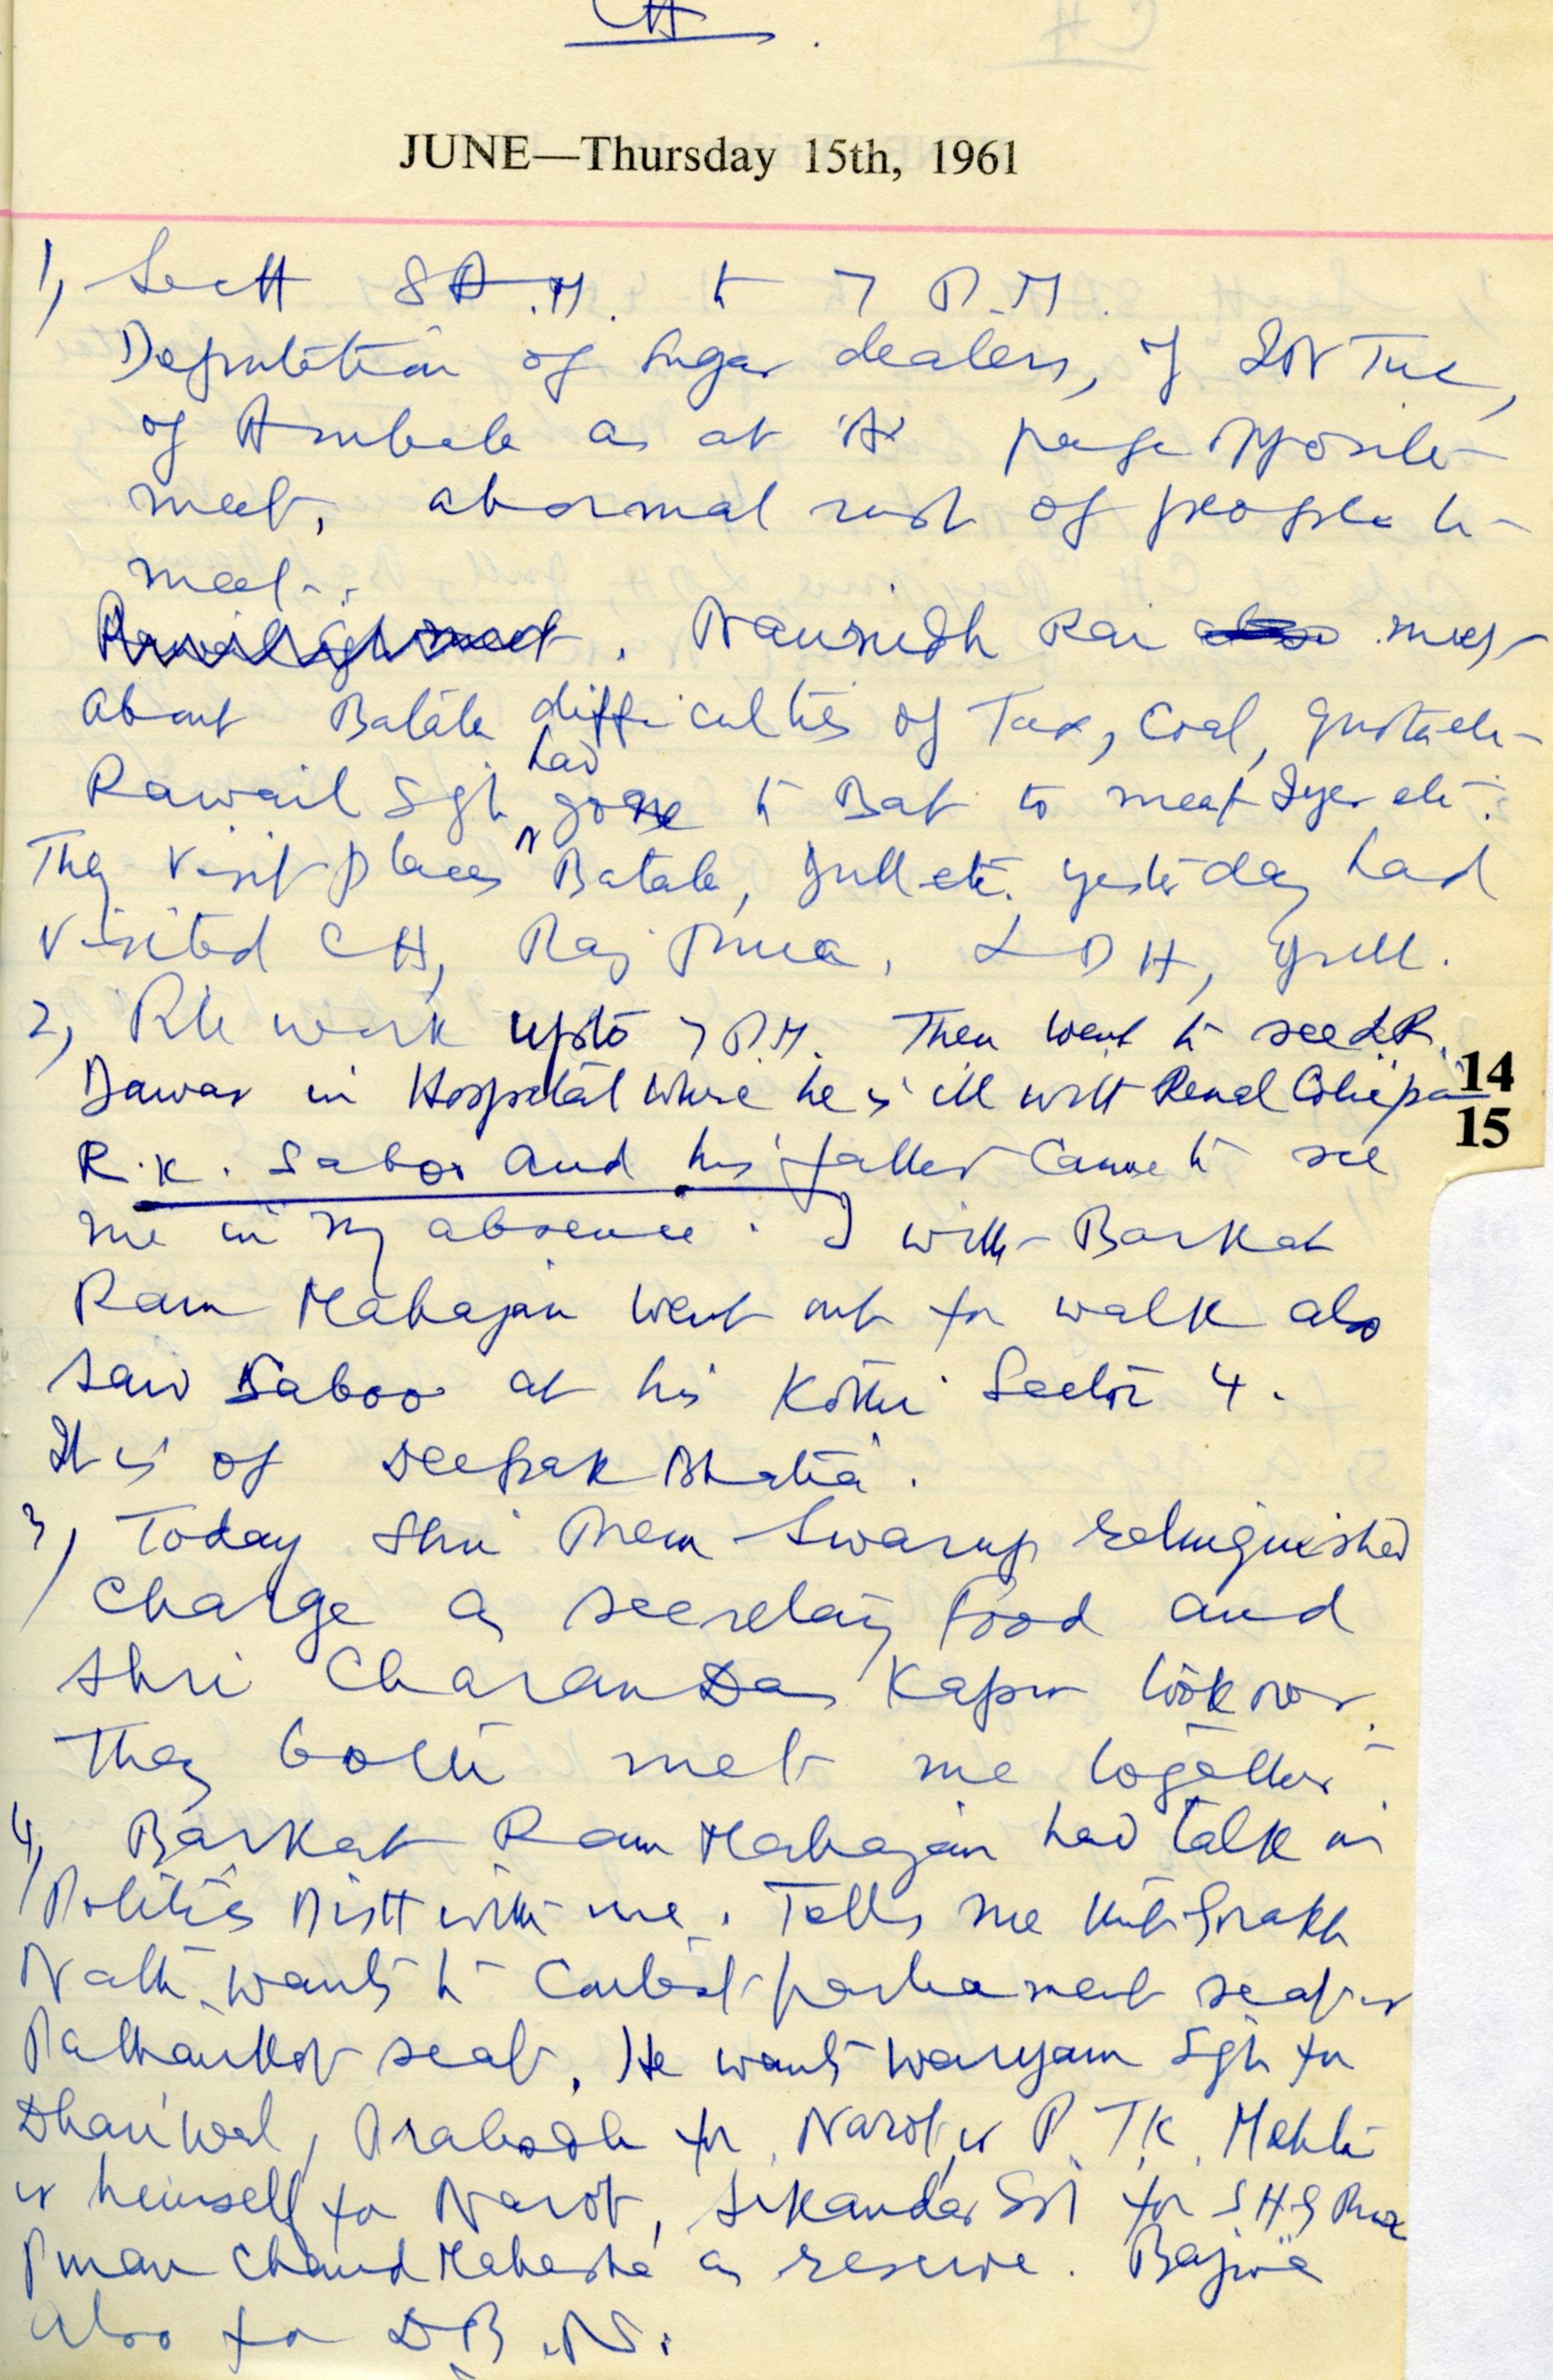 CH.
JUNE—Thursday 15th, 1961
1, Sectt 8 A.M. to 7 P.M.
Deputation of Sugar dealers, of INTUC,
of Ambala as at 'A' page opposite
meet, abnormal rush of people to
meet.
. Naunidh Rai meets
about Batala difficulties of Tax, Coal,
Rawail Sgh had gone to Bat to meet Iyer etc.
They visit places Batala, Jull etc. yesterday had
visited CH, Rajpura, LDH, Jull.
2, Rte work upto 7 P.M. Then went to see L.R.
Dawar in Hospital where he is ill with Renal Colic pain
14
15
R.K. Saboo and his father came to see
me in my absence. I with Barkat
Ram Mahajan went out for walk also
saw Saboo at his Kothi Sector 4.
It is of Deepak Bhatia.
3, Today Shri Prem Swarup relinquished
charge as secretary Food and
Shri Charan Das Kapur took over.
They both met me together
4, Barkat Ram Mahajan had talk on
Politics Distt with me. Tells me that Gorakh
Nath wants to contest parliament seat or
Pathankot seat. He wants Waryam Sgh for
Dhariwal, Prabodh for Narot or P.T.K. Mehta
or himself for Narot, Sikandar for S H G Pura
Puran Chand Mahasha as reserve. Bajwa
also for D.B.N.